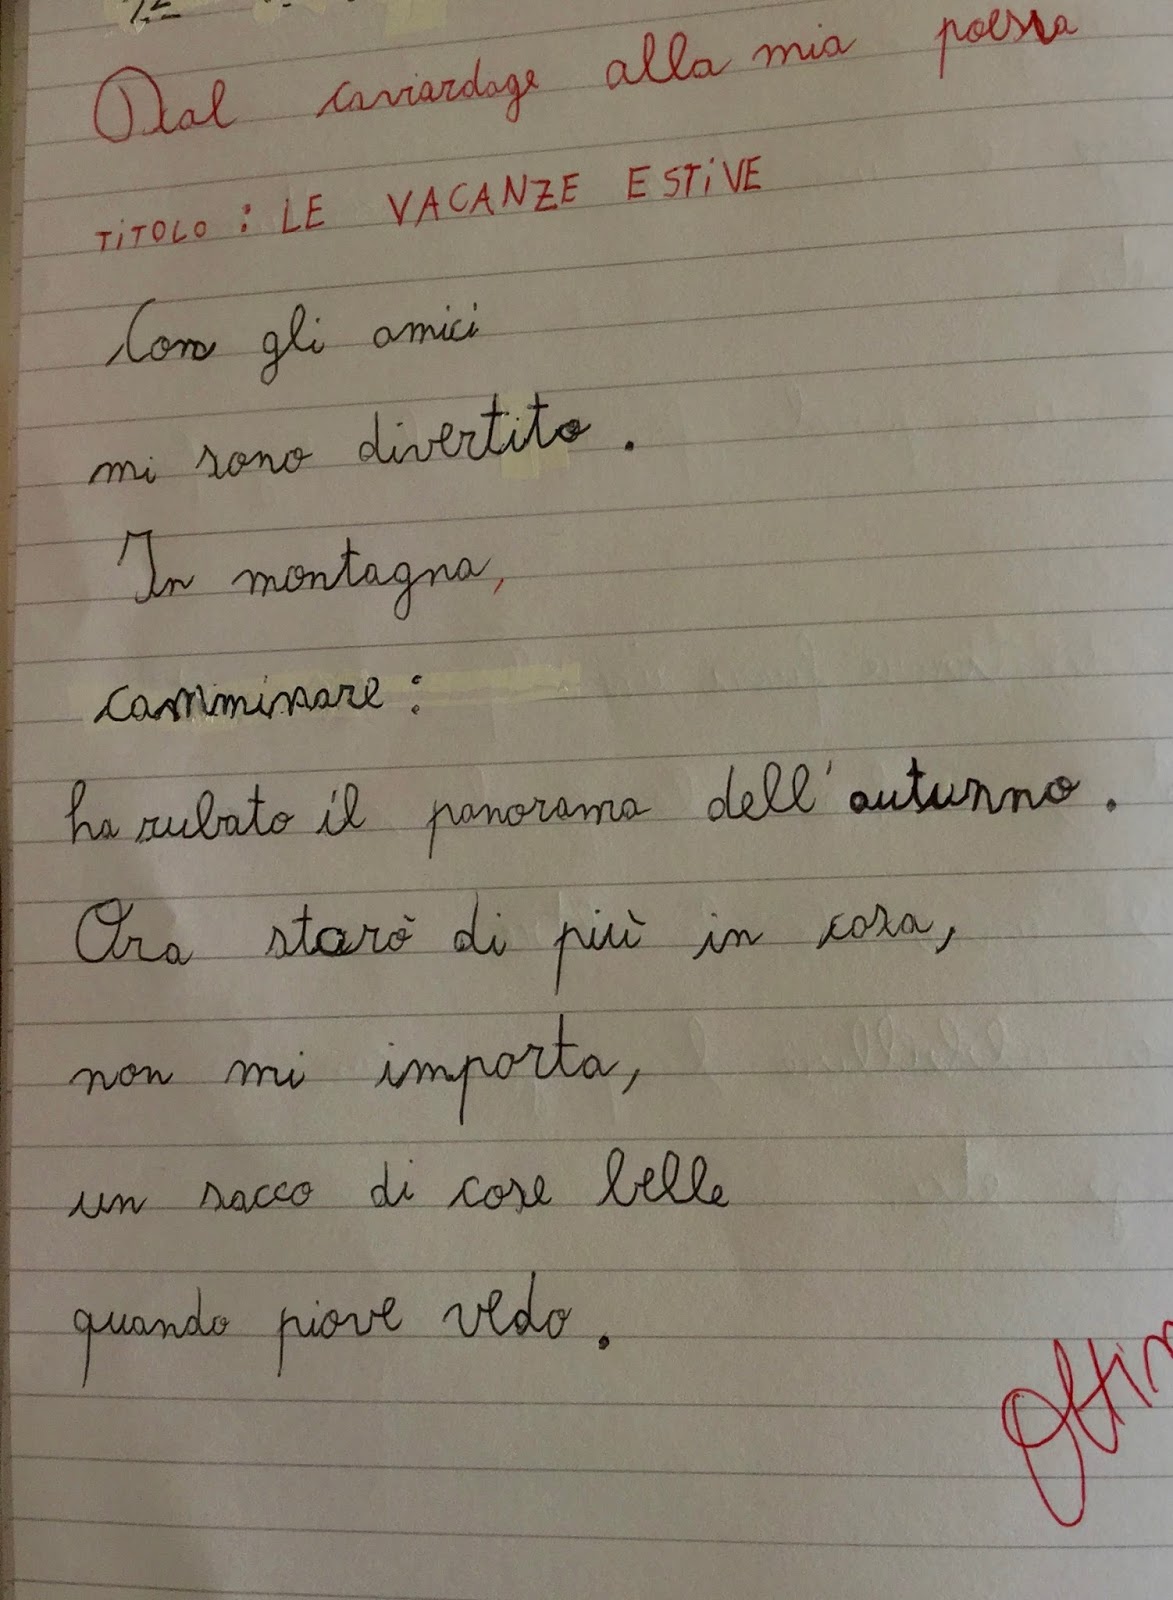 Dal caviardage alla mia poesia
TiTOLO : LE VACANZE ESTiVE
Con gli amici
mi sono divertito.
In montagna,
camminare:
ha rubato il panorama dell'autunno.
Ora starò di più in casa,
non mi importa,
un sacco di cose belle
quando piove vedo.
Ottim